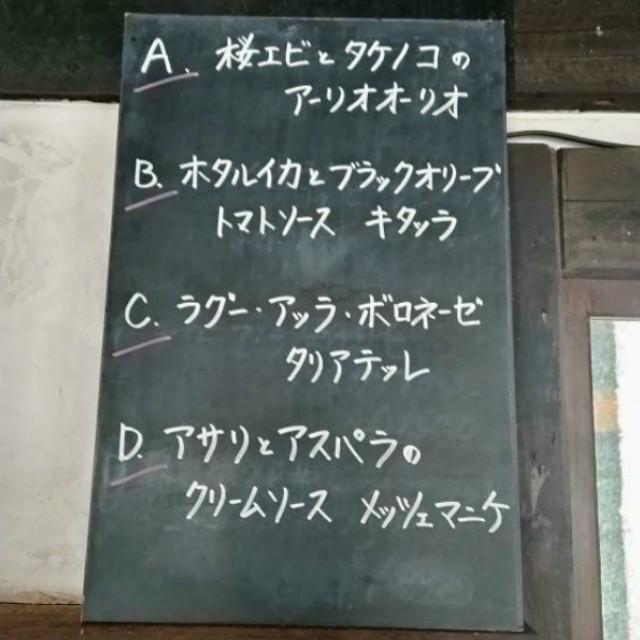 A. 桜エビとタケノコの
アーリオオーリオ
B. ホタルイカとブラックオリーブ
トマトソース キタッラ
C. ラグー・アッラ・ボロネーゼ
タリアテッレ
D. アサリとアスパラの
クリームソース メッツェマニケ